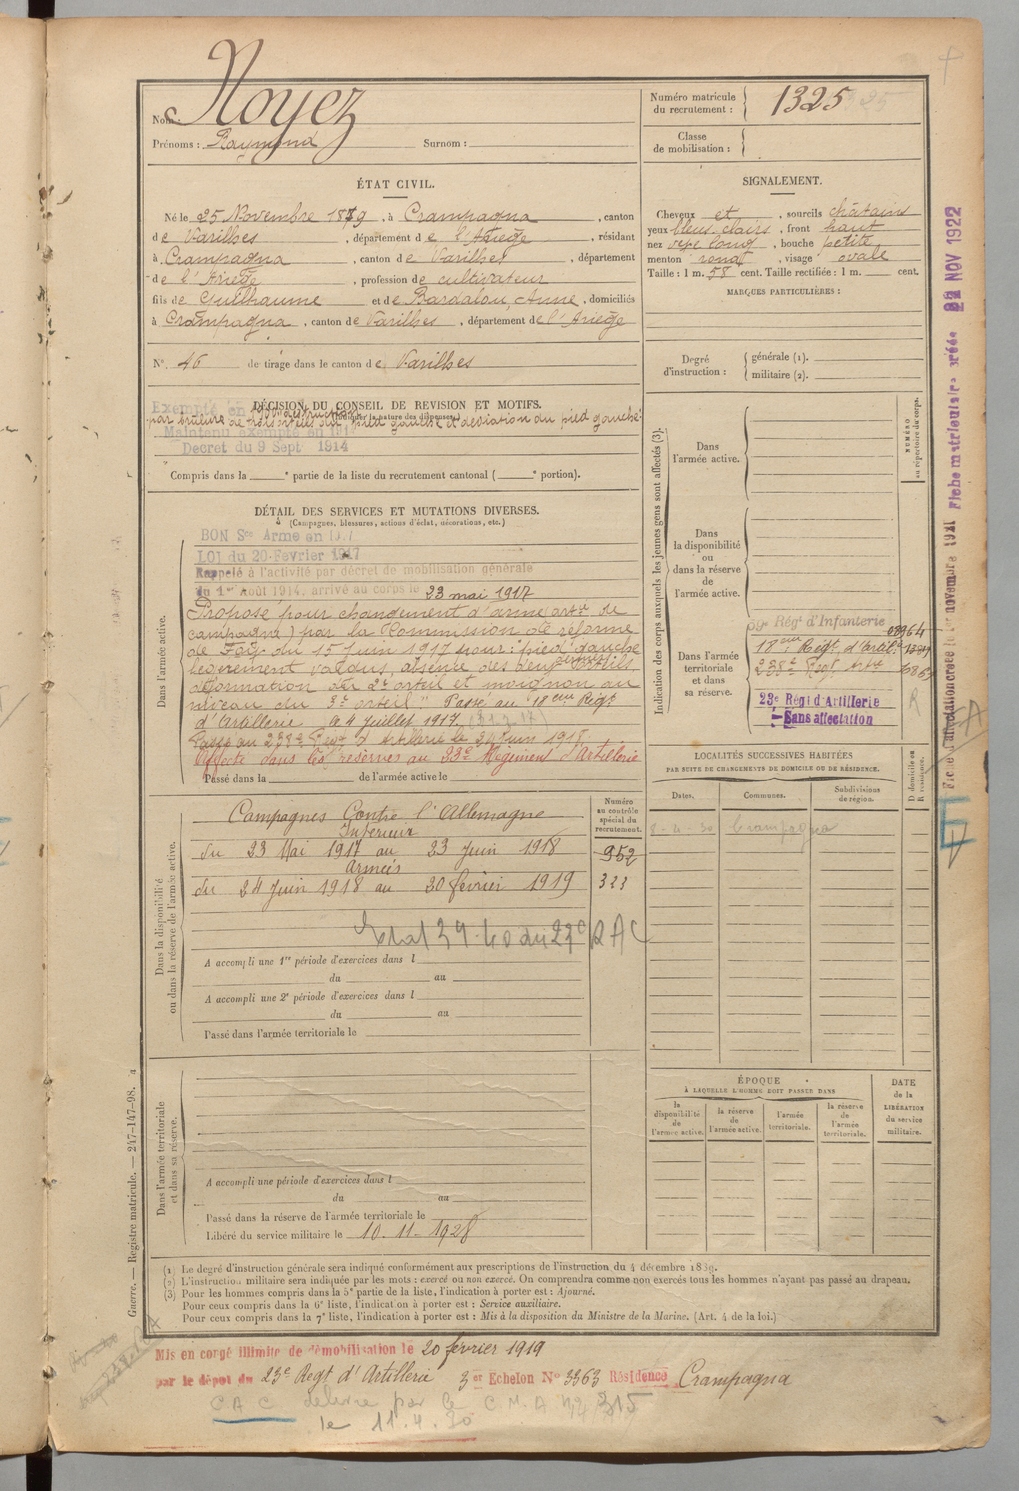 Nom : Noyez
Prénoms : Raymond Surnom :
Numéro matricule du recrutement : 1325
Classe de mobilisation :
ÉTAT CIVIL.
Né le 25 Novembre 1879, à Crampagna, canton
de Varilhes, département de l'Ariège, résidant
à Crampagna, canton de Varilhes, département
de l'Ariège, profession de cultivateur
fils de Guilhaume et de Bardalou Anne, domiciliés
à Crampagna, canton de Varilhes, département de l'Ariège
N° 46 de tirage dans le canton de Varilhes
SIGNALEMENT.
Cheveux et, sourcils châtains
yeux bleus clairs, front haut
nez long, bouche petite
menton rond, visage ovale
Taille : 1 m. 58 cent. Taille rectifiée : 1 m. cent.
MARQUES PARTICULIÈRES :
Degré d'instruction : générale (1).
militaire (2).
DÉCISION DU CONSEIL DE REVISION ET MOTIFS.
Exempté en
pied gauche et déviation du pied gauche
Maintenu exempté en 1914
Decret du 9 Sept 1914
Compris dans la e partie de la liste du recrutement cantonal ( e portion).
DÉTAIL DES SERVICES ET MUTATIONS DIVERSES.
(Campagnes, blessures, actions d'éclat, décorations, etc.)
Dans l'armée active.
BON Sce Armé en
LOI du 20-Fevrier 1917
Rappelé à l'activité par décret de mobilisation générale
du 1er Août 1914, arrivé au corps le 23 mai 1917
Proposé pour changement d'arme (artie de
campagne) par la Commission de réforme
de Foix du 15 Juin 1917 pour : pied gauche
légèrement valgus, absence des deux derniers orteils
déformation du 2e orteil et moignon au
niveau du 3e orteil" Passé au 18eme Régt
d'Artillerie le 4 Juillet 1917.
Passé au 238e Régt d'Artillerie le 24 Juin 1918
Affecté dans les réserves au 23e Régiment d'Artillerie
Passé dans la de l'armée active le
Indication des corps auxquels les jeunes gens sont affectés (3).
NUMÉRO au répertoire du corps.
Dans l'armée active.
Dans la disponibilité ou dans la réserve de l'armée active.
Dans l'armée territoriale et dans sa réserve.
59e Régt d'Infanterie
18eme Régt d'Artil.
238e Régt Artie
23e Régt d'Artillerie
Sans affectation
R
LOCALITÉS SUCCESSIVES HABITÉES
PAR SUITE DE CHANGEMENTS DE DOMICILE OU DE RÉSIDENCE.
Dates. Communes. Subdivisions de région. D domicile ou R résidence.
8-4-30 Crampagna
Dans la disponibilité ou dans la réserve de l'armée active.
Numéro au contrôle spécial du recrutement.
Campagnes Contre l'Allemagne
Intérieur
du 23 Mai 1917 au 23 Juin 1918 952
Armées
du 24 Juin 1918 au 20 février 1919 323
Etat 39-40 du 23e RAC
A accompli une 1re période d'exercices dans l
du au
A accompli une 2e période d'exercices dans l
du au
Passé dans l'armée territoriale le
Dans l'armée territoriale et dans sa réserve.
A accompli une période d'exercices dans l
du au
Passé dans la réserve de l'armée territoriale le
Libéré du service militaire le 10.11.1928
ÉPOQUE
À LAQUELLE L'HOMME DOIT PASSER DANS
la disponibilité de l'armée active. la réserve de l'armée active. l'armée territoriale. la réserve de l'armée territoriale.
DATE de la LIBÉRATION du service militaire.
(1) Le degré d'instruction générale sera indiqué conformément aux prescriptions de l'instruction du 4 décembre 1889.
(2) L'instruction militaire sera indiquée par les mots : exercé ou non exercé. On comprendra comme non exercés tous les hommes n'ayant pas passé au drapeau.
(3) Pour les hommes compris dans la 5e partie de la liste, l'indication à porter est : Ajourné.
Pour ceux compris dans la 6e liste, l'indication à porter est : Service auxiliaire.
Pour ceux compris dans la 7e liste, l'indication à porter est : Mis à la disposition du Ministre de la Marine. (Art. 4 de la loi.)
Mis en congé illimité de démobilisation le 20 février 1919
par le dépôt du 23e Régt d'Artillerie 3er Echelon N° 3363 Résidence Crampagna
C A C délivré par le C.M.A
le 11.4.30
Guerre. — Registre matricule. — 247-147-98.
Fiche matriculaire créée 22 NOV 1922